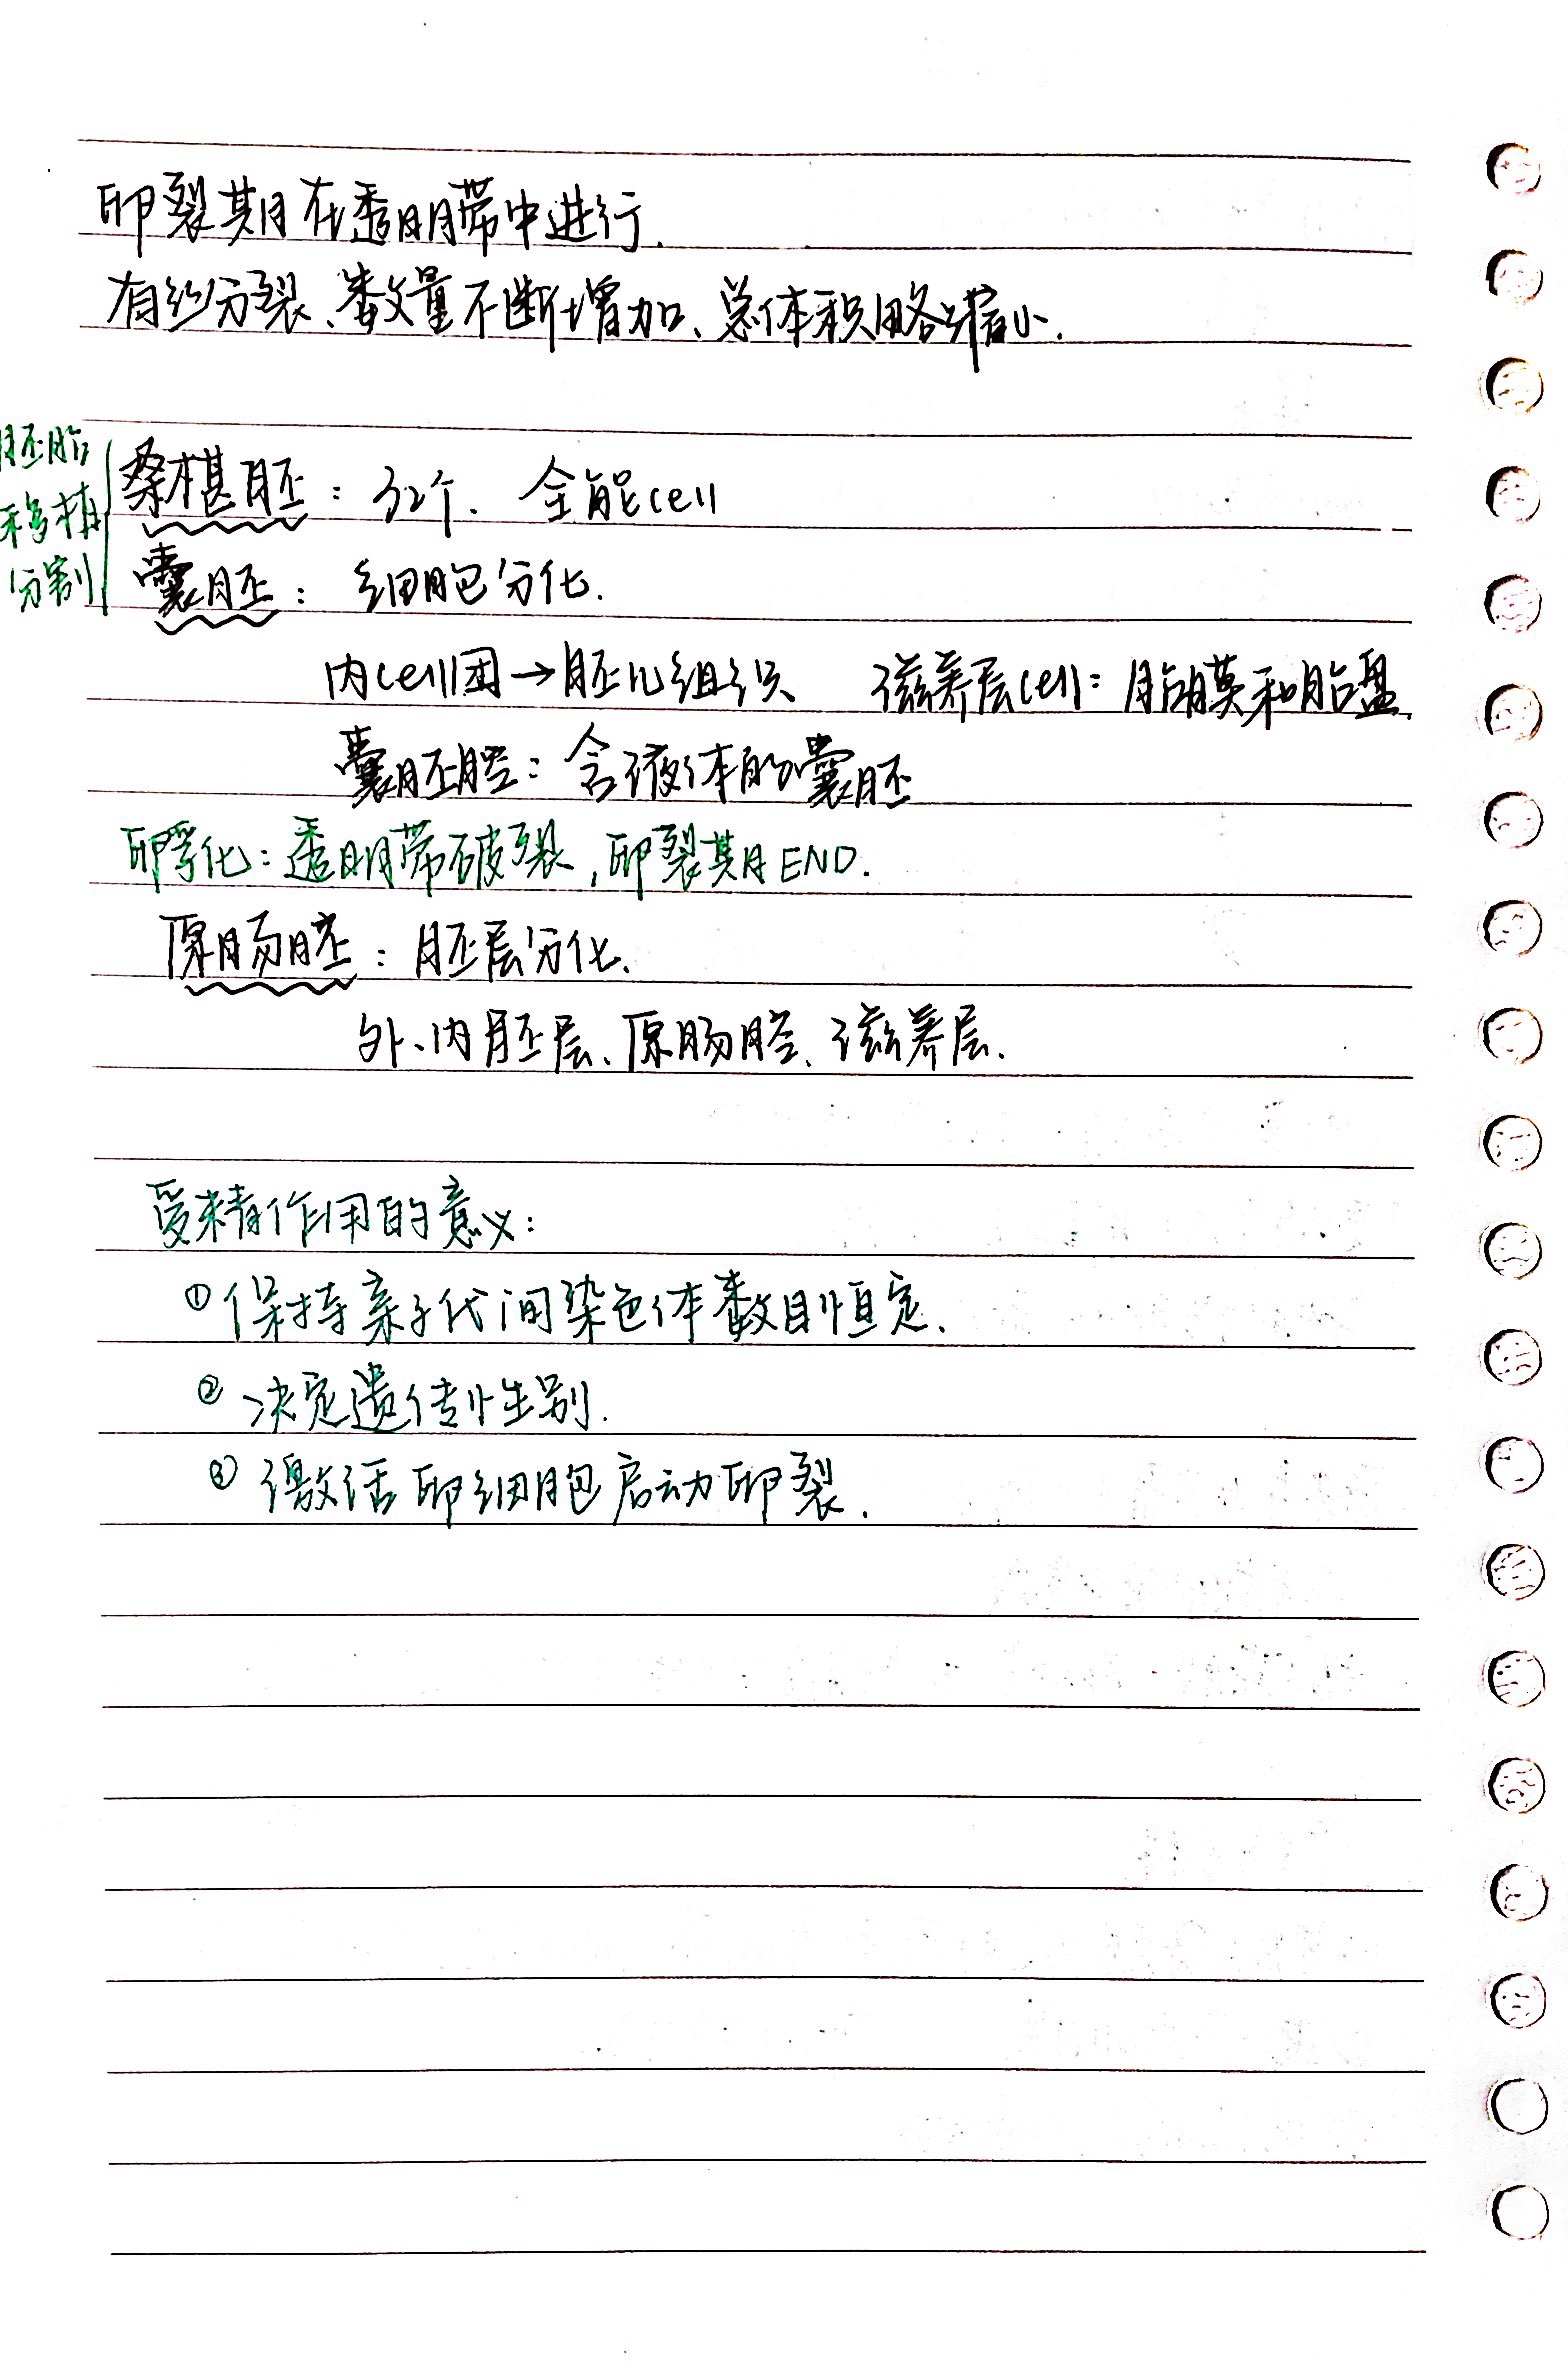 卵裂期在透明带中进行.
有丝分裂、数量不断增加、总体积略缩小.
胚胎
移植
分割
桑椹胚：32个. 全能cell
囊胚：细胞分化.
内cell团→胚儿组织 滋养层cell：胎膜和胎盘.
囊胚腔：含液体的囊胚
卵孵化：透明带破裂,卵裂期END.
原肠胚：胚层分化.
外、内胚层、原肠腔、滋养层.
受精作用的意义：
①保持亲子代间染色体数目恒定.
②决定遗传性别.
③激活卵细胞启动卵裂.